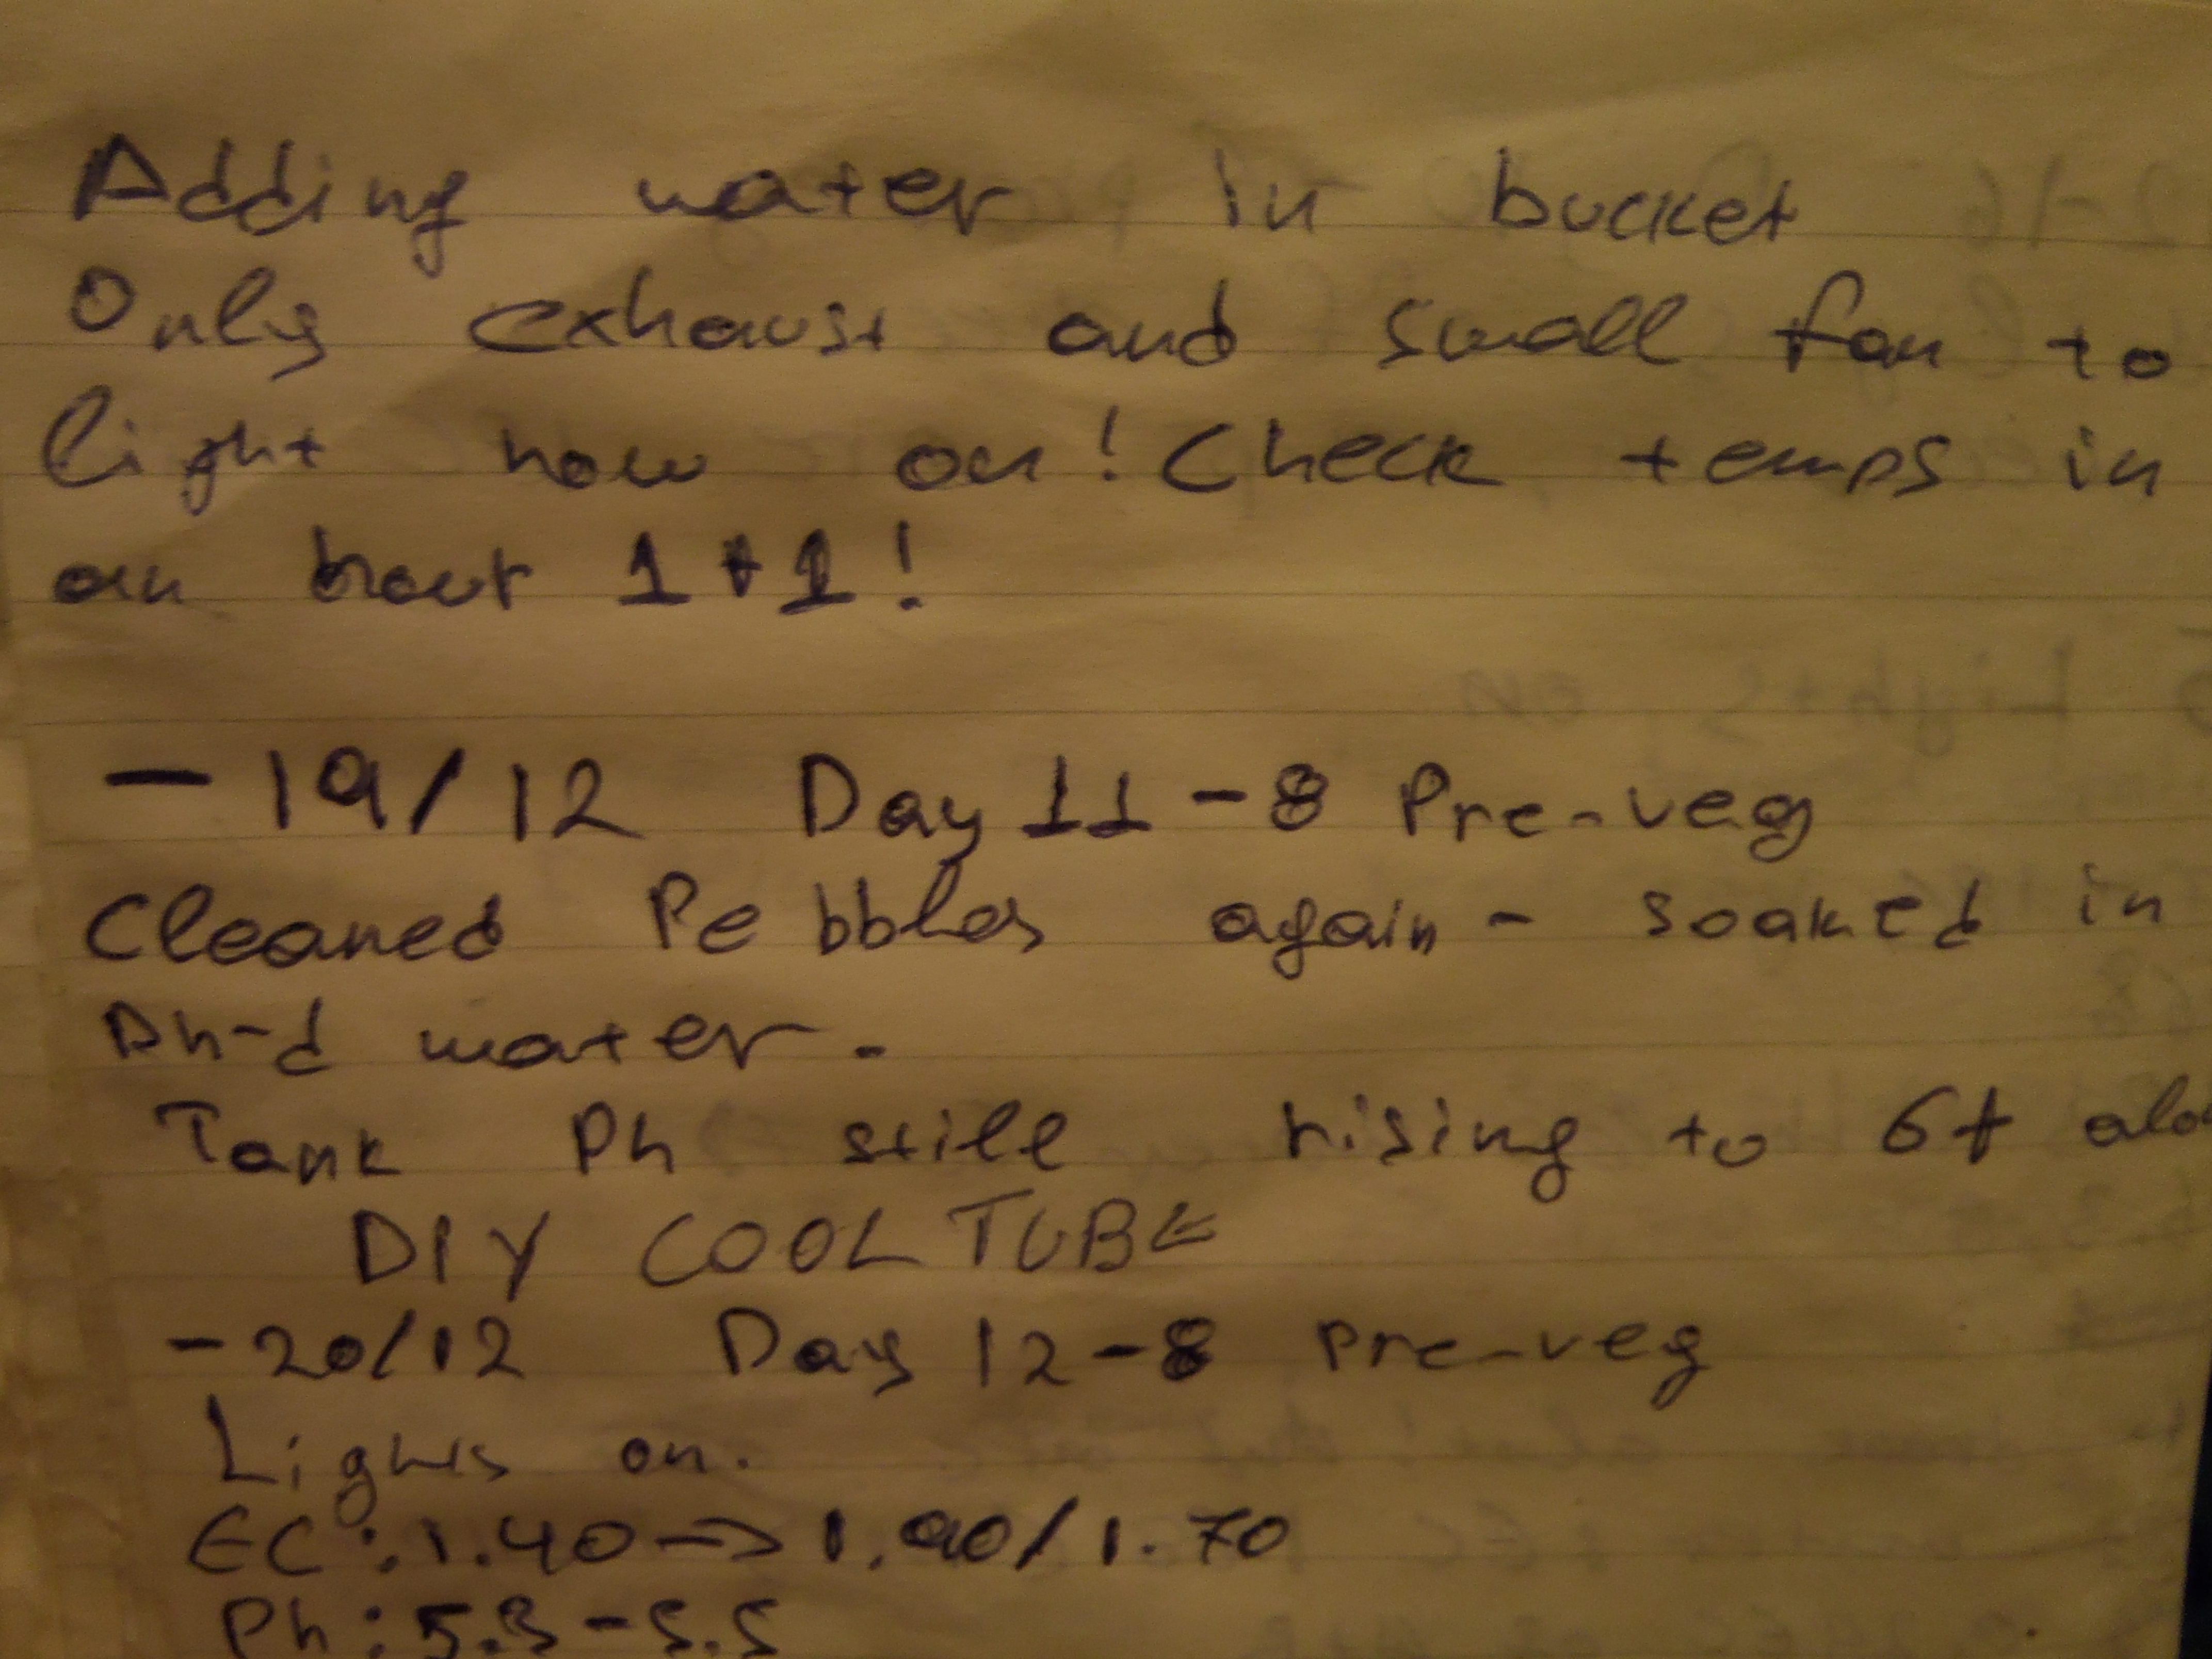 Adding water in bucket
Only exhaust and small fan to
light now on! Check temps in
an hour 1+1!
- 19/12 Day 11-8 Pre-veg
Cleaned Pebbles again - soaked in
Ph-d water.
Tank Ph still rising to 6+
DIY COOL TUBE
- 20/12 Day 12-8 pre-veg
Lights on.
EC: 1.40 -> 1.90/1.70
Ph: 5.3-5.5